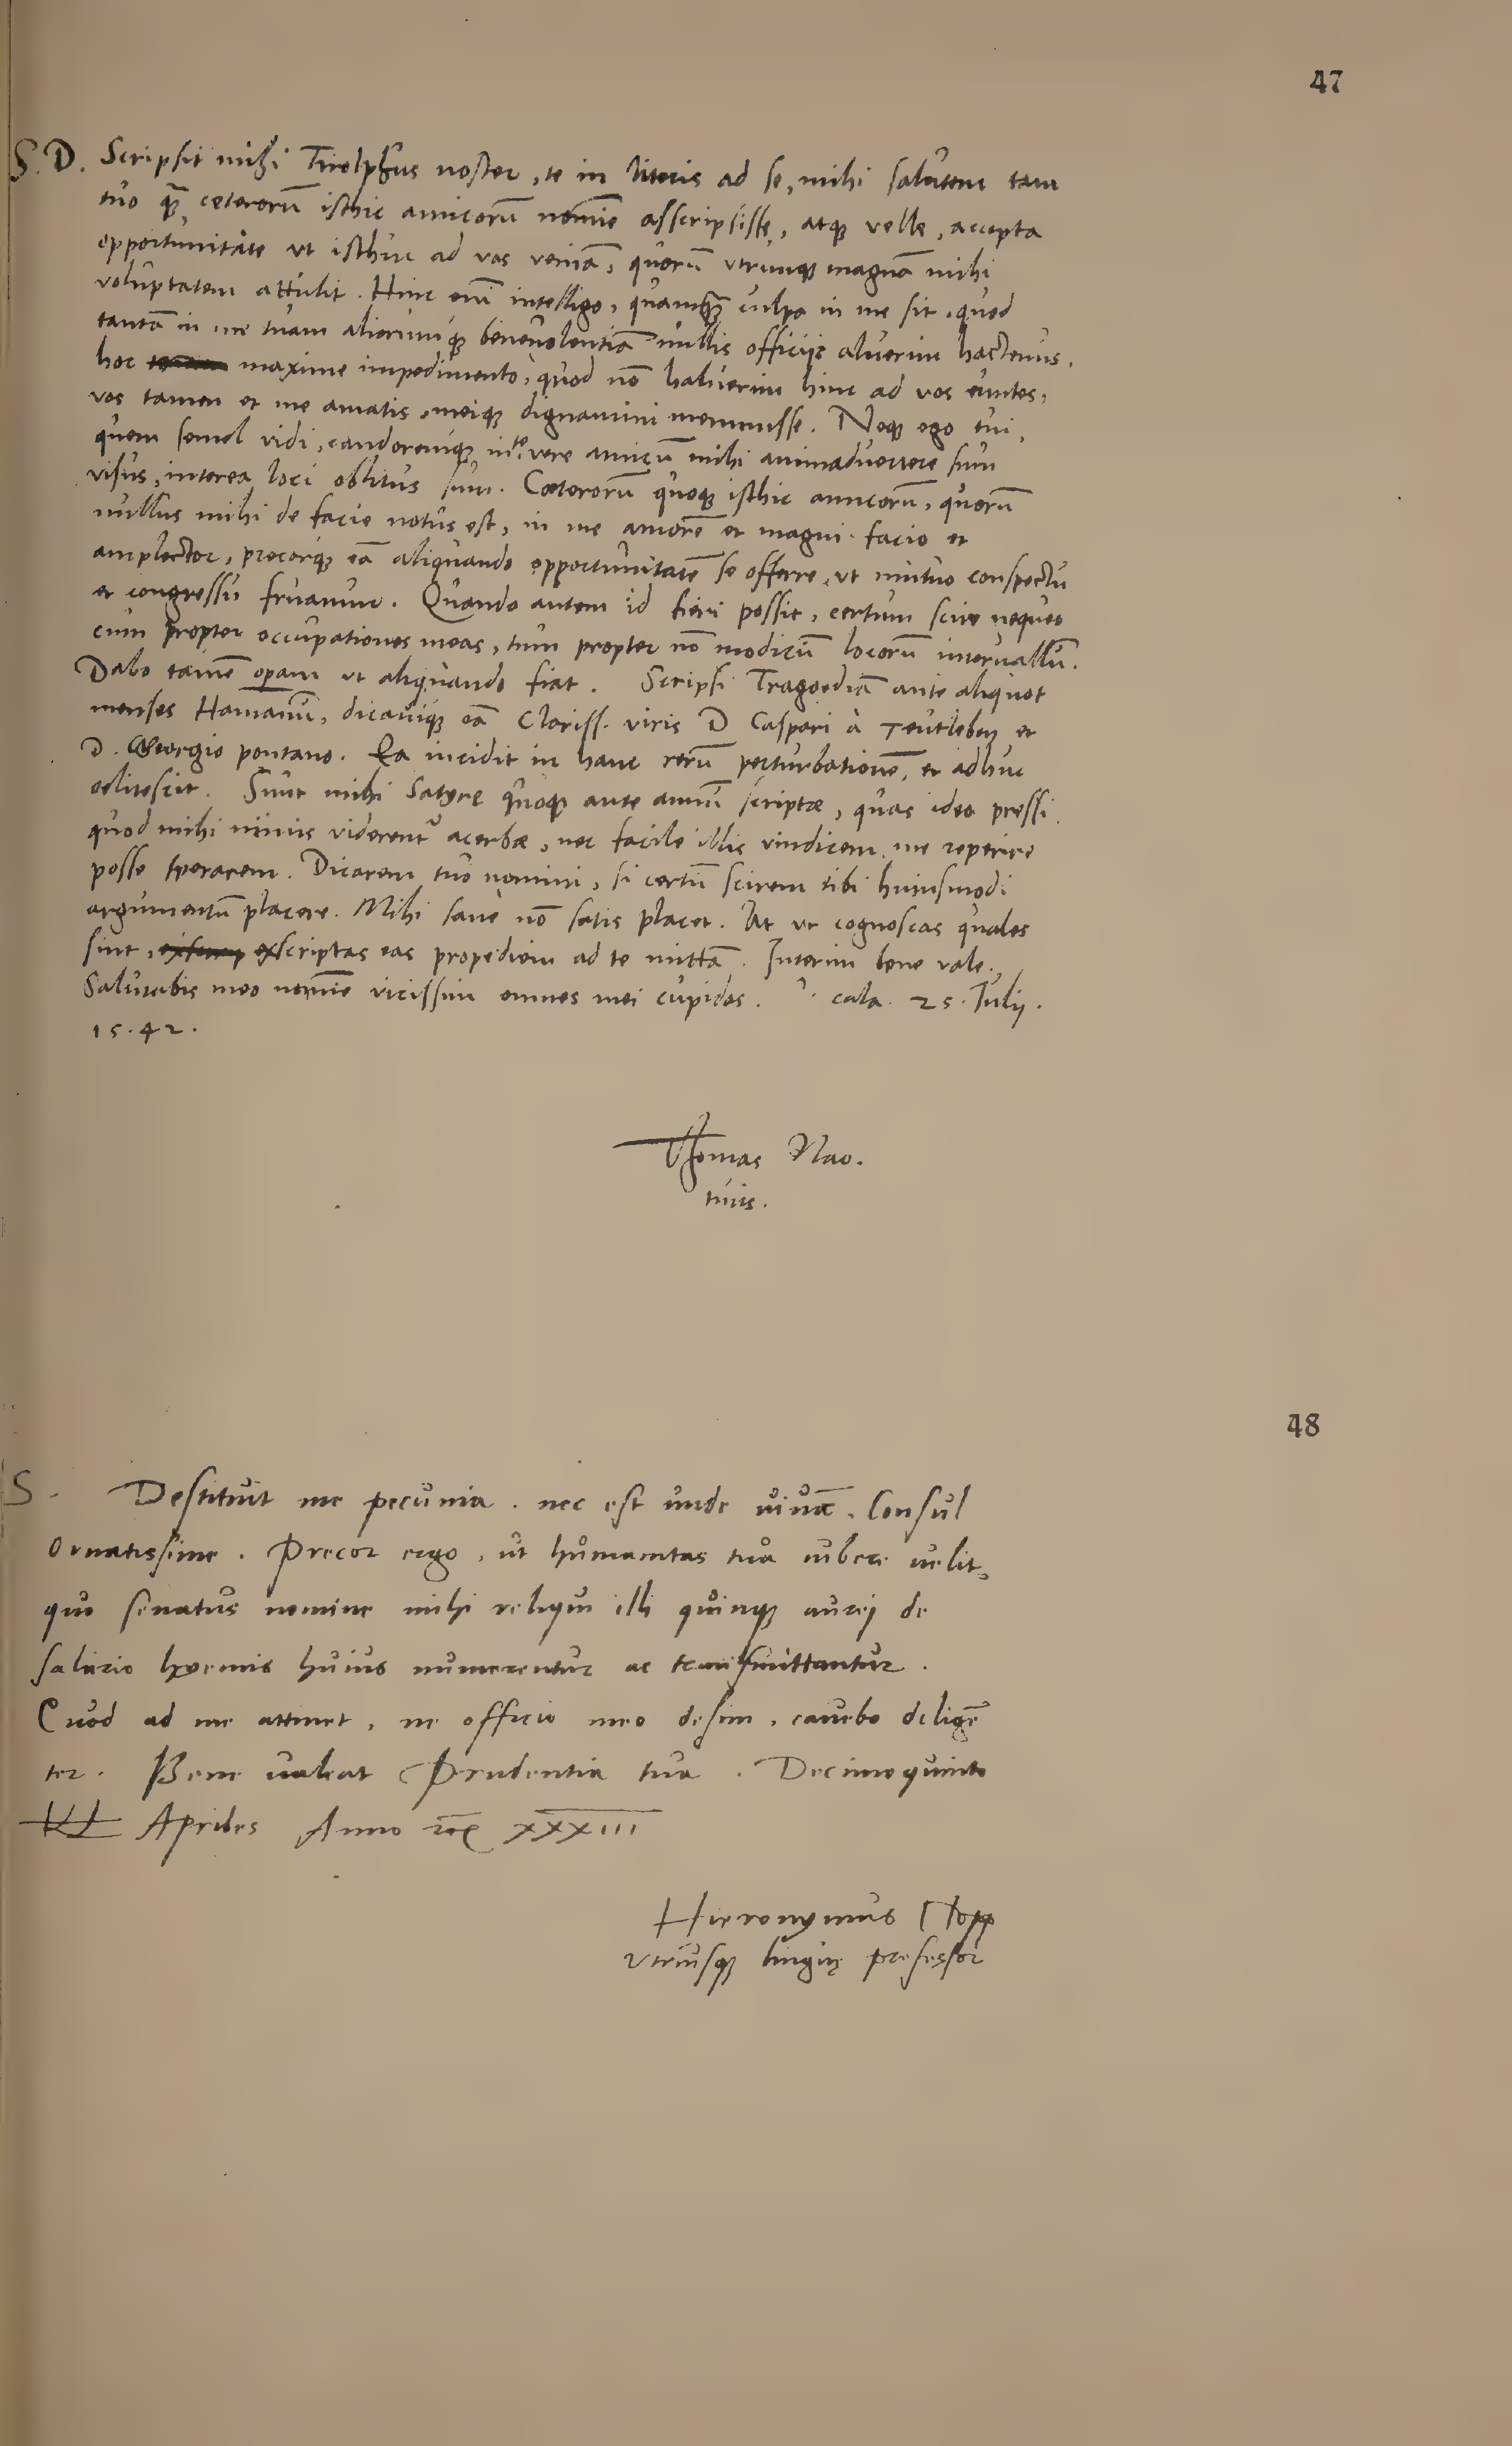 47
S. D. Scripsit mihi Tirolphus noster, te in literis ad se, mihi salutem tam
tuo qꝫ̃ ceterorũ isthic amicorũ nomĩe asscripsisse, atqꝫ velle, accepta
opportunitate vt isthuc ad vos veniã, quorũ vtrunqꝫ magnã mihi
voluptatem attulit. Hinc enĩ intelligo, quamqꝫ̃ culpa in me sit, quod
tantã in me tuam aliorumqꝫ beneuolentiã nullis officijs aluerim hactenus,
hoc maxime impedimento, quod nõ habuerim hinc ad vos euntes,
vos tamen et me amatis, meiqꝫ dignamini meminisse. Neqꝫ ego tui,
quem semel vidi, candoremqꝫ in te vere amicũ mihi animaduertere sum
visus, interea loci oblitus sum. Cæterorũ quoqꝫ isthic amicorũ, quorũ
nullus mihi de facie notus est, in me amorẽ et magni facio et
amplector, precorqꝫ eã aliquando opportunitatẽ se offerre, vt mutuo conspectu
et congressu fruamur. Quando autem id fieri possit, certum scire nequeo
cum propter occupationes meas, tum propter nõ modicũ locorũ interuallũ.
Dabo tamẽ operam vt aliquando fiat. Scripsi Tragoediã ante aliquot
menses Hamanũ, dicauiqꝫ eã Clariss. viris D Caspari à Teutleben et
D. Georgio pontano. Ea incidit in hanc rerũ perturbationẽ, et adhuc
delitescit. Sunt mihi Satyrę quoqꝫ ante annũ scriptæ, quas ideo pressi
quod mihi nimis viderentꝰ acerbæ, nec facile illis vindicem me reperire
posse sperarem. Dicarem tuo nomini, si certũ scirem tibi huiusmodi
argumentũ placere. Mihi sane nõ satis placet. At vt cognoscas quales
sint, exscriptas eas propediem ad te mittã. Interim bene vale.
Salutabis meo nomĩe vicissim omnes mei cupidos. cala. 25. Iulij.
15.42.
Thomas Nao.
tuus.
48
S. Destituit me pecunia. nec est unde uiuã. Consul
Ornatissime. Precor ergo, ut humanitas tua iubere uelit,
quo senatus nomine mihi reliqui illi quinqꝫ aurej de
salario hyemis huius numerentur ac transmittantur.
Quod ad me attinet, ne officio meo desim, cauebo diligẽ
ter. Bene ualeat Prudentia tua. Decimoquinto
Kl Apriles Anno XXXIII
Hieronymus Nopp
Vtriusqꝫ linguę professor